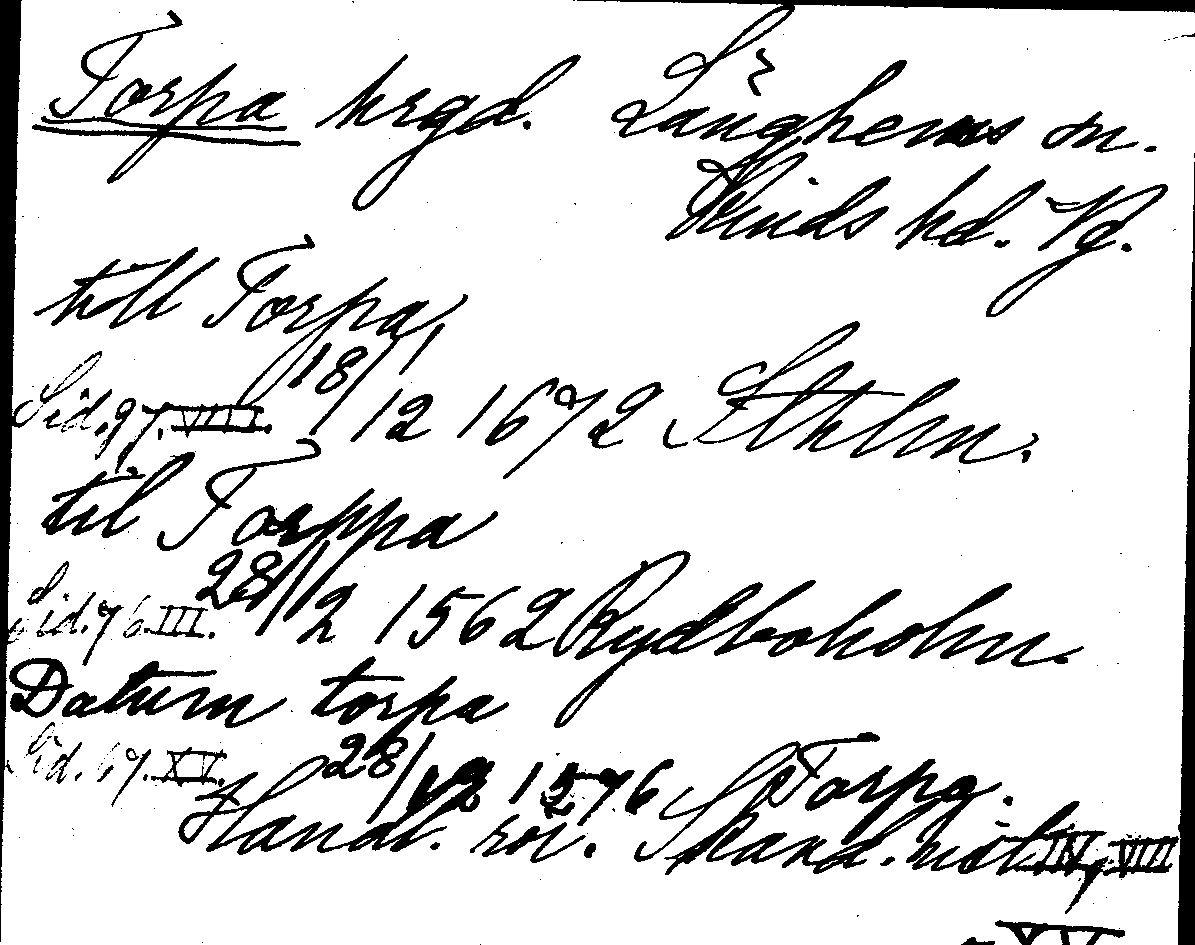 Torpa hrgd. Länghems sn.
Kinds hd. Vg.
till Torpa
Sid. 97. VIII. 18/12 1672 Sthlm.
til Torppa
Sid. 76. III. 28/12 1562 Rydboholm.
Datum torpa
Sid. 67. XV. 28/12 1576 Torpa.
Handl. rör. Skand. hist. III, VIII
XV